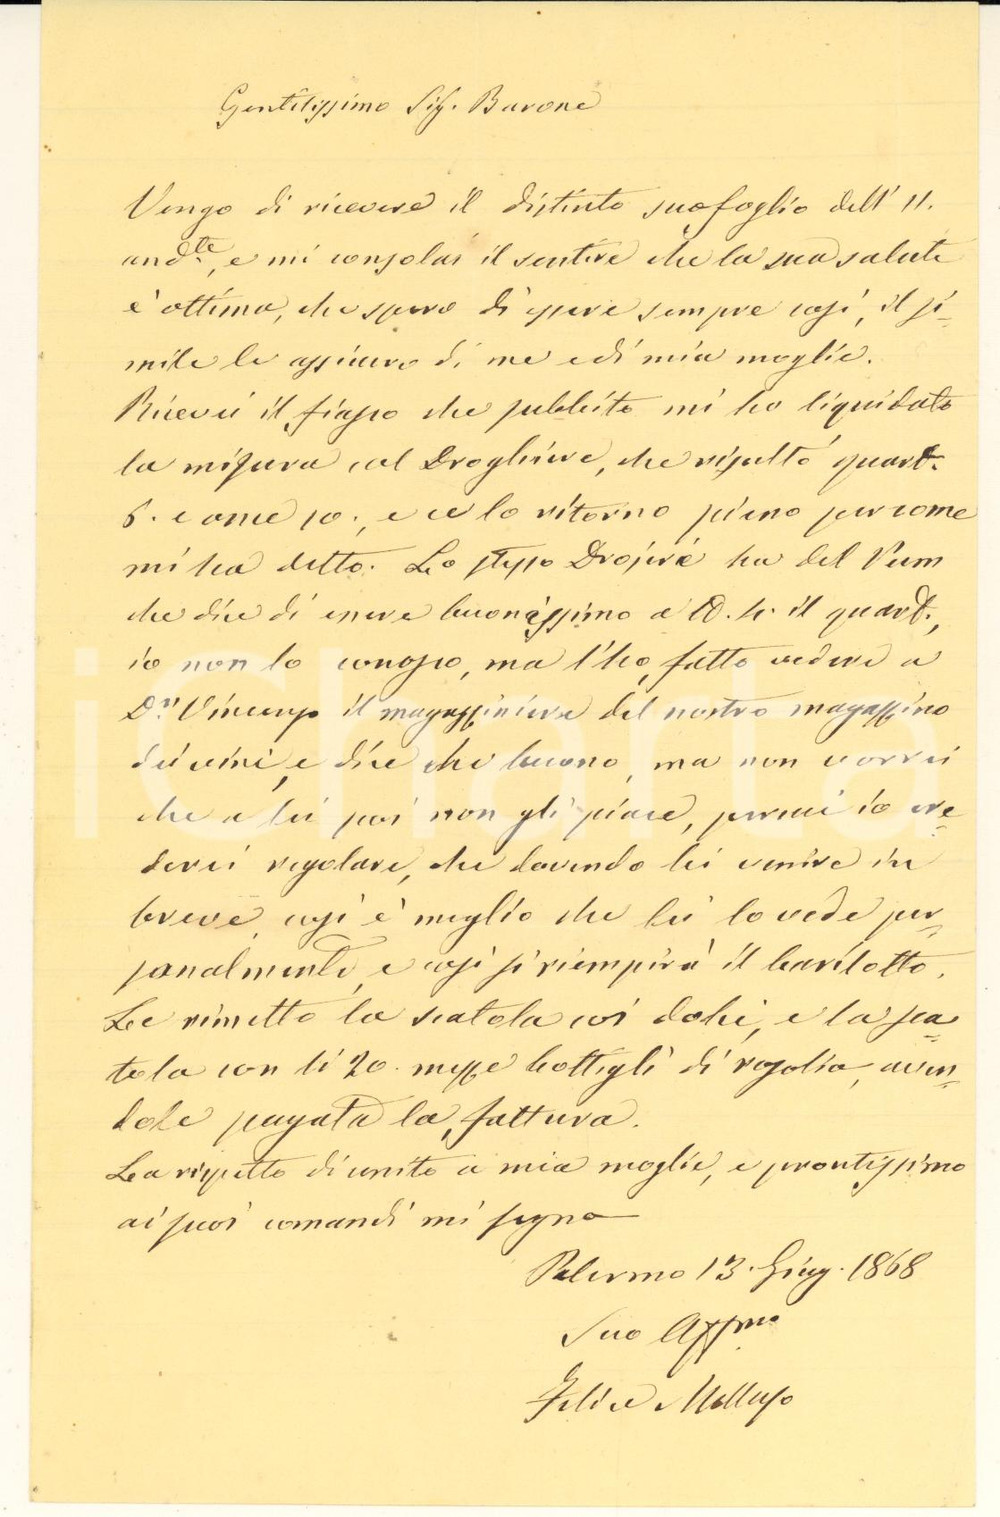 Gentilissimo Sig. Barone
Vengo di ricevere il distinto suo foglio dell' 11.
and.te, e mi consolai il sentire che la sua salute
è ottima, che spero di essere sempre così, il si-
mile le assicuro di me e di mia moglie.
Ricevei il fiasco che subbito mi ho liquidato
la misura col Droghiere, che risultò quart.
6. e once 10., e ce lo ritorno pieno per come
mi ha detto. Lo stesso Drojere ha del Rum
che dice di essere buonissimo a il quart.,
io non lo conosco, ma l'ho fatto vedere a
D.n Vincenzo il magazziniere del nostro magazzino
dei vini, e dice che buono, ma non vorrei
che a lei poi non gli piace, perciò io cre-
derei regolare, che dovendo lei venire in
breve, così è meglio che lei lo vede per-
sonalmente, e così si riempirà il barilotto.
Le rimetto la scatola coi dolci, e la sca-
tola con li 20. mezze bottigli di rosolio, aven-
dole pagata la fattura.
La rispetto di unito a mia moglie, e prontissimo
ai suoi comandi mi segno
Palermo 13. Giug. 1868
Suo Affmo
Felice
iCharta